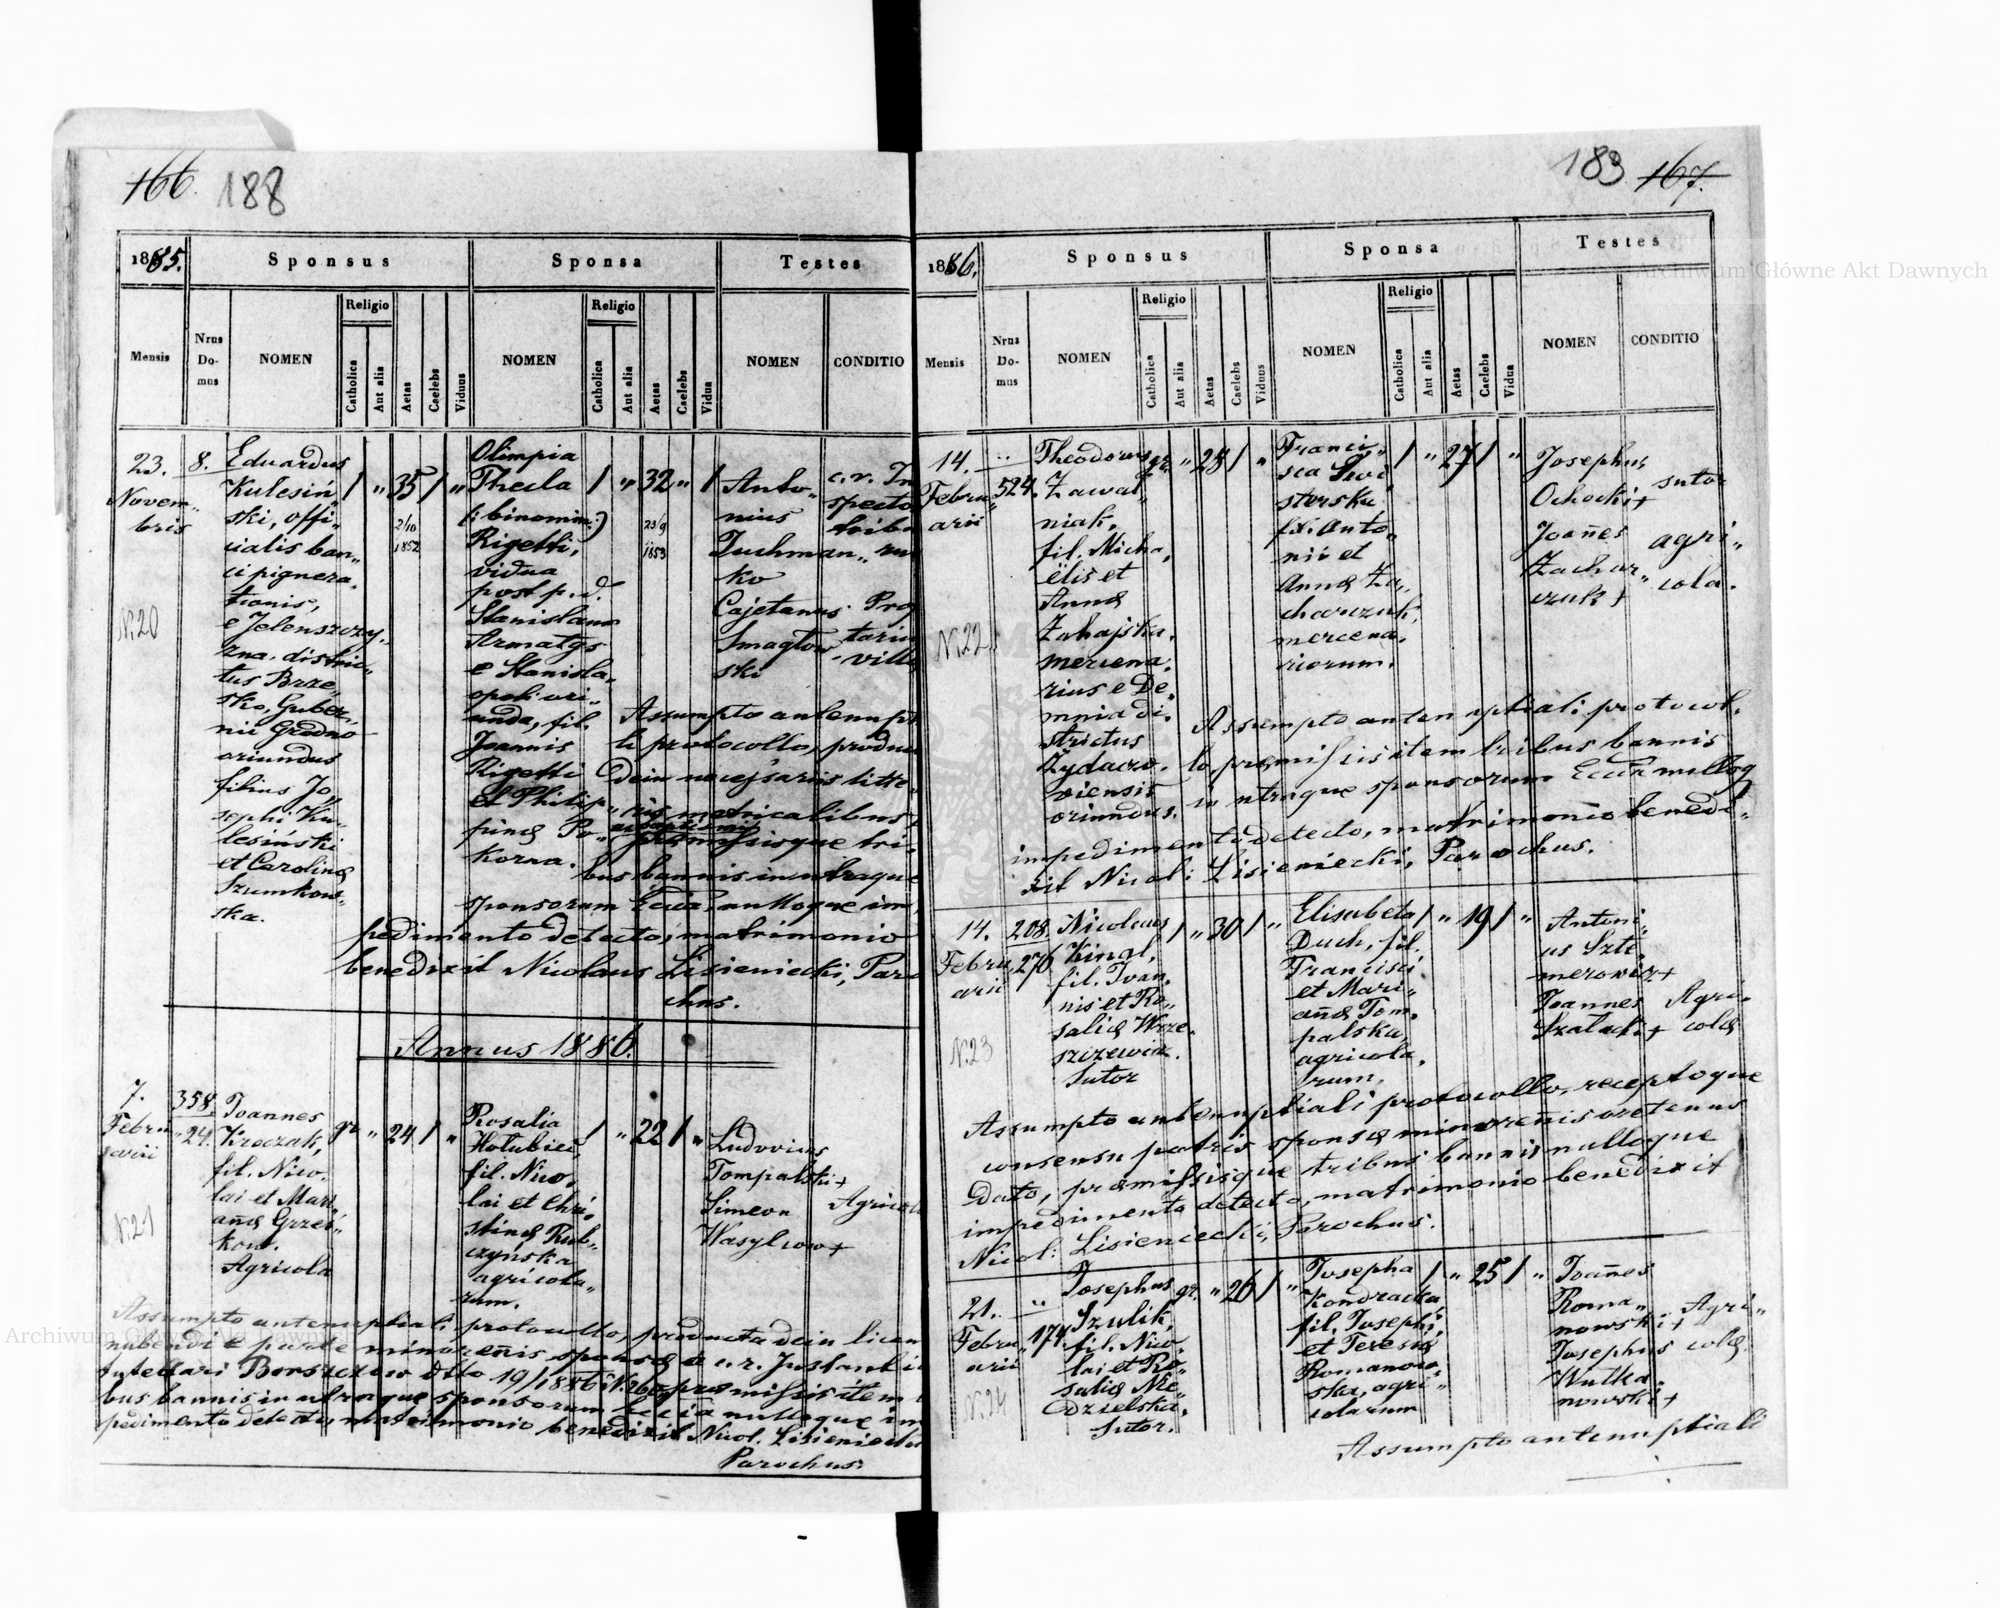 166. 188
1885.
Sponsus
Sponsa
Testes
Mensis
Nrus Do-mus
NOMEN
Religio
Catholica
Aut alia
Aetas
Caelebs
Viduus
NOMEN
Religio
Catholica
Aut alia
Aetas
Caelebs
Vidua
NOMEN
CONDITIO
23.
Novem„
bris
N.20
8.
Eduardus
Kulesiń
ski, offi„
cialis ban„
ci pignera„
tionis,
e Jelenszczy„
zna, distric„
tus Brze„
sko, Guber„
nii Grodno
oriundus
filius Jo„
sephi Ku„
lesiński
et Carolinæ
Szumkow„
ska.
/ „ 35 / „
2/10
1852
Olimpia
Thecla
(: binomin:)
Rigetti,
vidua
post p. d.
Stanislaum
Armatys
e Stanisla„
opoli ori„
unda, fil.
Joannis
Rigetti
et Philip„
pinæ Po„
korna.
/ „ 32 „ /
23/9
1853
Anto„
nius
Tuchman„
ko
Cajetanus
Smagłow
ski
c. r. In
specto
tribu
Assumpto antenupt
li protocollo, produc
dein necessariis litte„
ris matricalibus
præmissisque tri„
bus bannis in utraque
sponsorum Eccia, nulloque im„
pedimento detecto, matrimonio
benedixit Nicolaus Lisieniecki, Paro
chus.
Annus 1886.
7.
Febru
arii
N.21
358.
24.
Joannes
Kreczak,
fil. Nico„
lai et Mari„
añæ Grzes„
kow.
Agricola
gr. „ 24 / „
Rosalia
Hołubiec,
fil. Nico„
lai et Chri„
stinæ Rub„
czyńska
agricola„
rum.
/ „ 22 / „
Ludovicus
Tompalski +
Simeon
Wasylcow +
Agricol
Assumpto antenuptiali protocollo, producta dein licen
nubendi e parte minoreñis sponsæ a c. r. Justantia
tutellari Borszczow dtto 19/1 1886 præmissis item
bus bannis in utraque sponsorum Eccia nulloque im
pedimento detecto, matrimonio benedixit Nicol. Lisieniecki
Parochus.
183 167.
1886.
Sponsus
Sponsa
Testes
Mensis
Nrus Do-mus
NOMEN
Religio
Catholica
Aut alia
Aetas
Caelebs
Viduus
NOMEN
Religio
Catholica
Aut alia
Aetas
Caelebs
Vidua
NOMEN
CONDITIO
14.
Febru„
arii
N.22
524.
Theodorus
Zawal„
niak,
fil. Micha„
ëlis et
Annæ
Zahajska,
mercena„
rius e De„
mnia di„
strictus
Żydaczo„
viensis
oriundus.
gr. „ 28 / „
Franci„
sca Swi
sterska
fil. Anto„
nii et
Annæ Za„
charczuk,
mercena„
riorum.
/ „ 27 / „
Josephus
Ochocki +
Joañes
Zachar„
czuk +
sutor
agri„
cola.
Assumpto antenuptiali protocol„
lo, præmissis item tribus bannis
in utraque sponsorum Eccia nulloq
impedimento detecto, matrimonio benedi„
xit Nicol: Lisieniecki, Parochus.
14.
Febru
arii
N.23
208.
276
Nicolaus
Kinal,
fil. Joan„
nis et Ro„
saliæ Wrze„
szczewicz.
Sutor
/ „ 30 / „
Elisabeta
Duch, fil.
Francisci
et Mari„
añæ Tom„
palska,
agricola„
rum.
/ „ 19 / „
Antoni„
us Szte„
merowicz +
Joannes
Szałacki +
Agri„
colæ
Assumpto antenuptiali protocollo, receptoque
consensu patris sponsæ minoreñis oretenus
dato, præmissisque tribus bannis nulloque
impedimento detecto, matrimonio benedixit
Nicol: Lisieniecki, Parochus.
21.
Febru„
arii
N.24
174.
Josephus
Szulik,
fil. Nico„
lai et Ro„
saliæ Nie„
dzielska,
Sutor.
gr. „ 26 / „
Josepha
Kondracka,
fil. Josephi,
et Teresiæ
Romanow„
ska, agri„
colarum
/ „ 25 / „
Joañes
Roma„
nowski +
Josephus
Wutka„
nowski +
Agri„
colæ
Assumpto antenuptiali
Archiwum Główne Akt Dawnych
Archiwum Główne Akt Dawnych